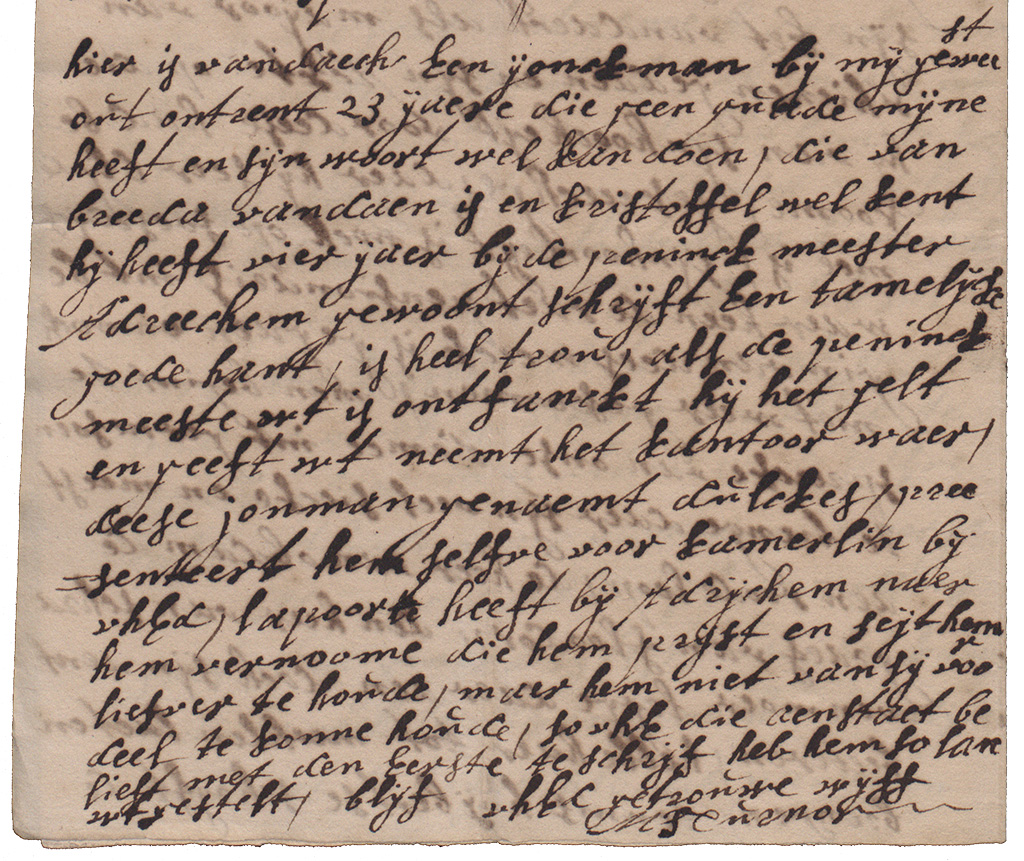 hier is vandaech een yonckman bij mij geweest
out ontrent 23 ijaere die geen quade mijne
heeft en sijn woort wel kan doen, die van
breeda vandaen is en kristoffel wel kent
hij heeft vier ijaer bij de peninck meester
Adreechem gewoont schrijft een tamelijcke
goede hant, is heel trou, als de peninck
meeste wt is ontfanckt hij het gelt
en geeft wt neemt het kantoor waer,
deese jonman genaemt dulckes, pree
senteert hem selfve voor kamerlin bij
vhEd, lapoorte heeft bij Adrychem naer
hem vernoome die hem prijst en seijt hem
liefver te houde, maer hem niet van sij voo
deel te konne houde, so vhE die aenstaet be
lieft met den eerste te schrijf heb hem so lan
wtgestelt, blijf vhEd getrouwe wijff
M